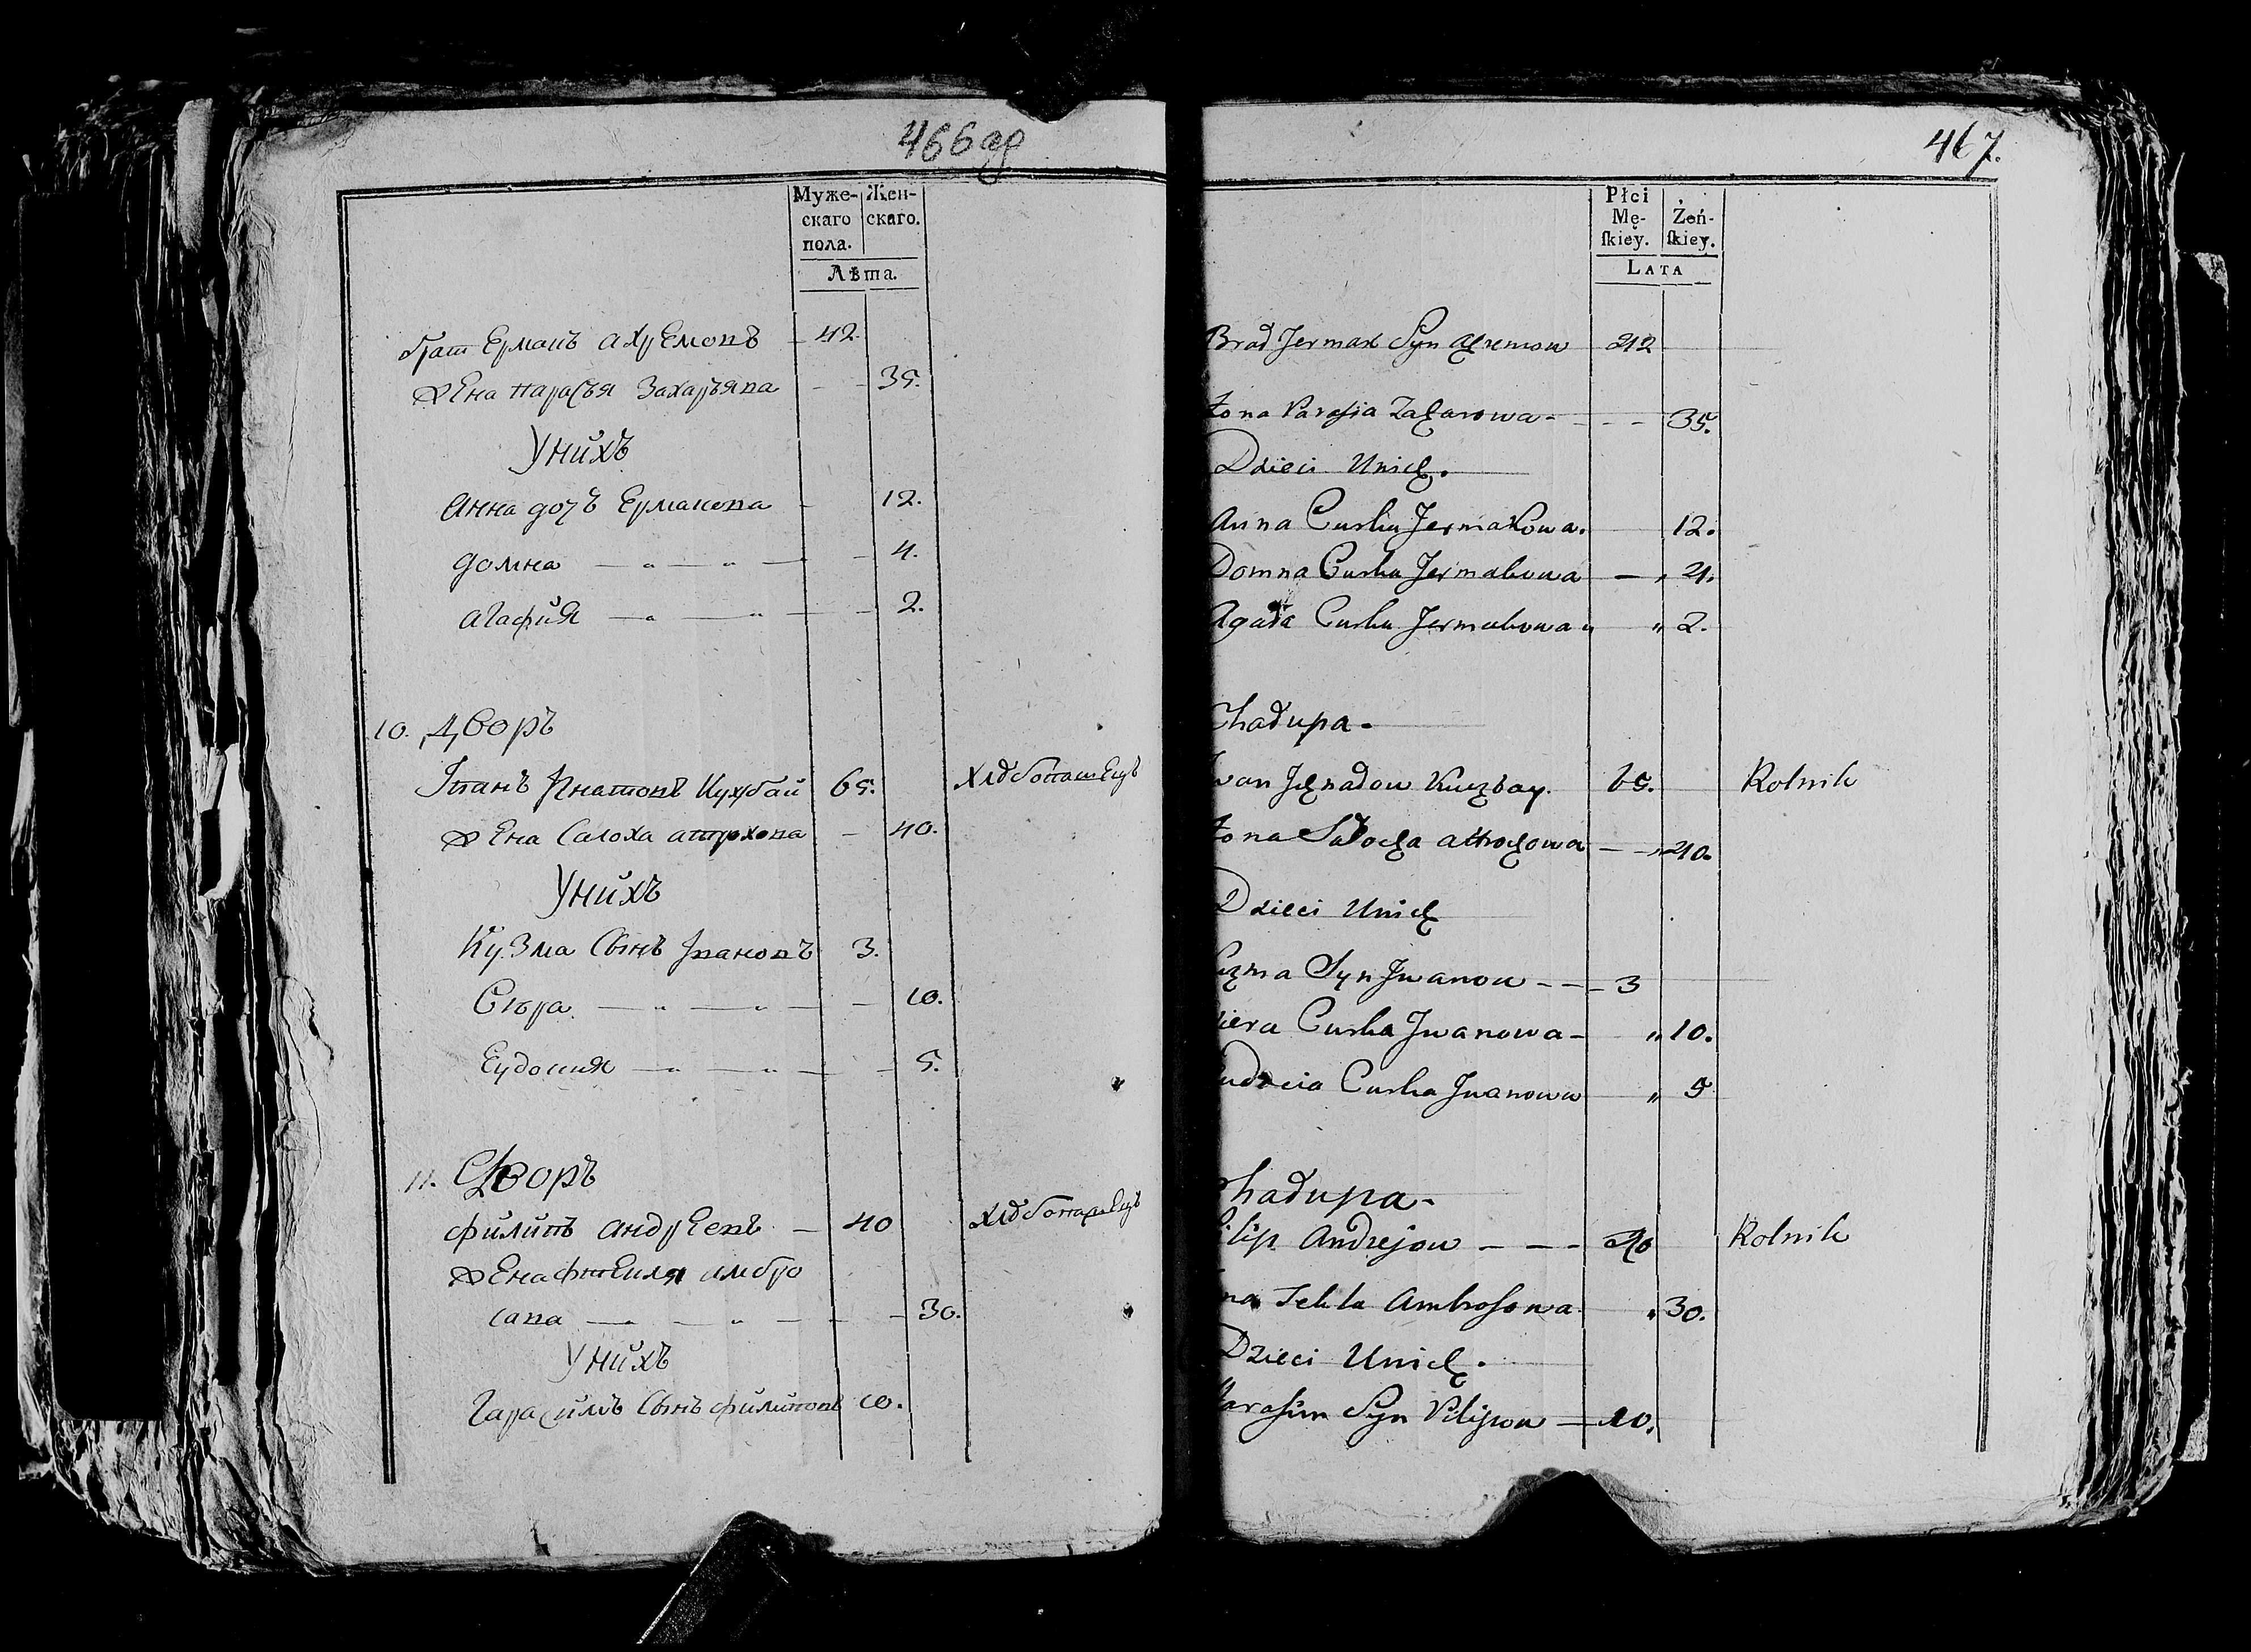 466 об
Муже- Жен-
скаго скаго.
пола.
Лѣта.
брат Ермакъ ахремовъ 42.
жена парасья захарьява 35.
У нихъ
анна дочъ Ермакова 12.
домна — " — " — 4.
агафия — " — " — 2.
10. Дворъ
Иванъ Игнатовъ Кухбай 65. хлѣбопашецъ
жена Салоха атрохова 40.
У нихъ
Кузма Сынъ Ивановъ 3.
— " — " — 10.
Еудокия — " — " — 5.
11. Дворъ
филипъ андреевъ — 40 хлѣбопашецъ
жена амбро
сава — " — 30.
У нихъ
Гарасимъ Сынъ филиповъ 10.
467.
Płci
Mę- Żeń-
skiey. skiey.
LATA
Brad Jermak Syn achremow 42
żona Parasia Zacharowa - - - - 35.
Dzieci Unich.
Anna Curka Jermakowa. 12.
Domna Curka Jermakowa — " 4.
Agata Curka Jermakowa " 2.
Chadupa -
Iwan Ichnadow 65. Rolnik
żona Sałocha attrochowa — - 40.
Dzieci Unich
uzma Syn Jwanow - - - 3
iera Curka Jwanowa - " 10.
udocia Curka Jwanowa " 5
hadupa -
ilip Andrejow - - - 40 Rolnik
na Tekla Ambrosowa " 30.
Dzieci Unich.
arasim Syn Pilipow — 10.